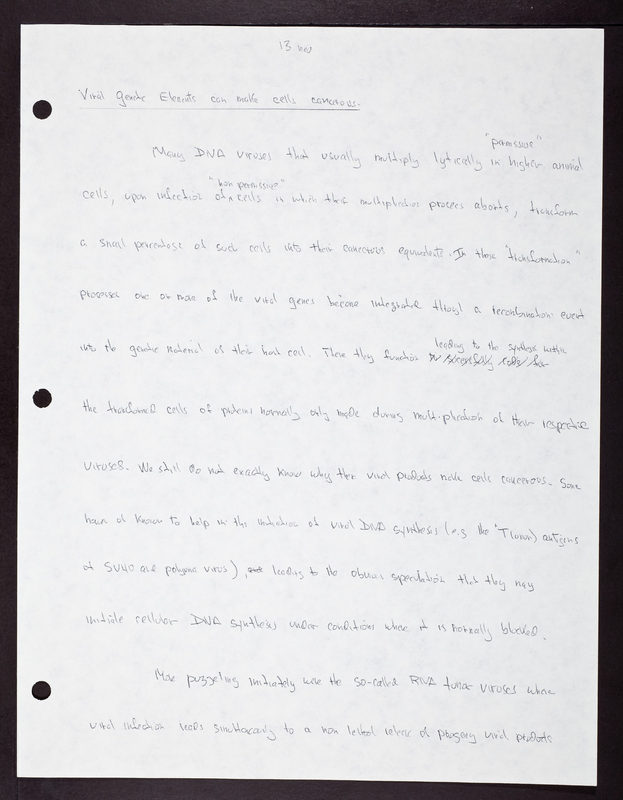 13
Viral Genetic Elements can make cells cancerous.
"permissive"
Many DNA viruses that usually multiply lytically in higher animal
"non permissive"
cells, upon infection of ^ cells in which their multiplication process aborts, transform
a small percentage of such cells into their cancerous equivalents. In these "transformation"
processes one or more of the viral genes become integrated through a recombination event
leading to the synthesis within
into the genetic material of their host cell. There they function
the transformed cells of proteins normally only made during multiplication of their respective
viruses. We still do not exactly know why these viral products make cells cancerous. Some
have at known to help in the initiation of viral DNA synthesis (e.g. the T(umor) antigens
of SV40 and polyoma virus), leading to the obvious speculation that they may
initiate cellular DNA synthesis under conditions where it is normally blocked.
More puzzeling initially were the so-called RNA tumor viruses where
viral infection leads simultaneously to a non lethal release of progeny viral products